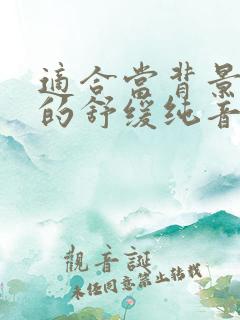 適合當背景
的舒缓纯音
觀音誕
未任同意禁止转载